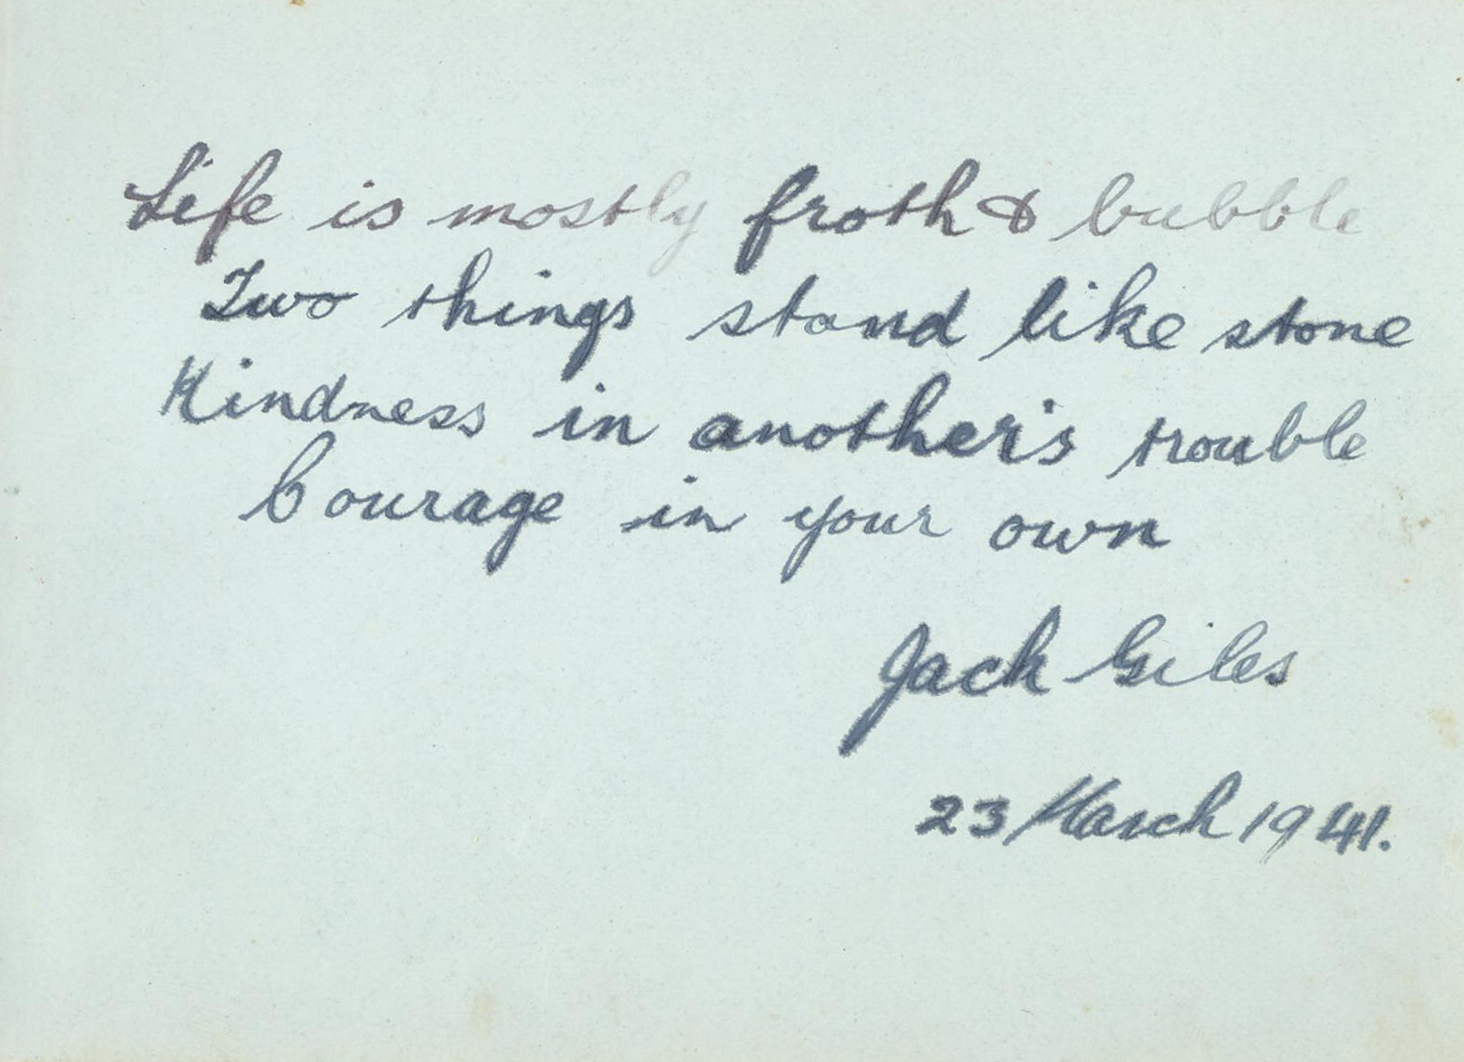 Life is mostly froth & bubble
Two things stand like stone
Kindness in another's trouble
Courage in your own
Jack Giles
23 March 1941.